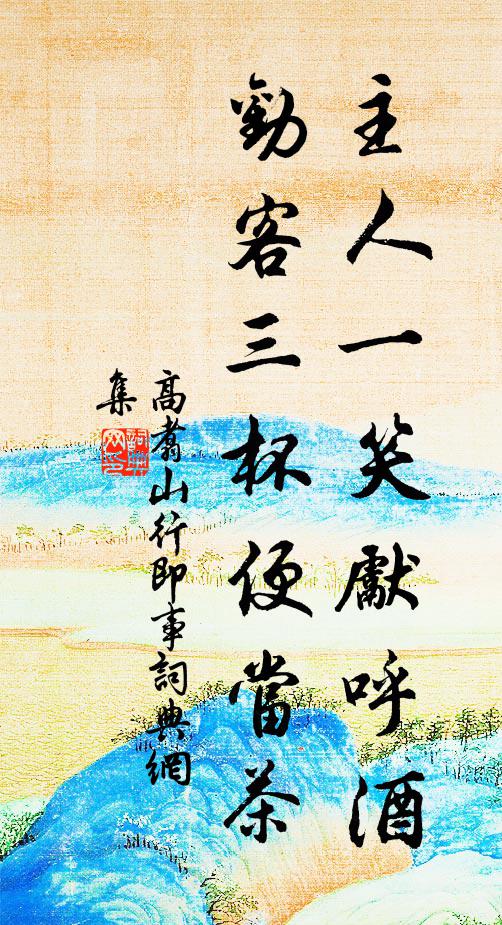 主人一笑獻呼酒
勸客三杯便當茶
高翥山行即事詞典網
集